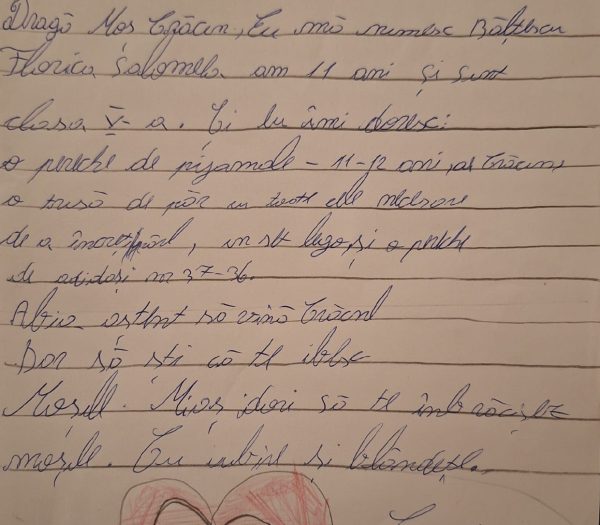 Dragă Moș Crăciun, Eu mă numesc Bălțescu
Florica Salomela am 11 ani și sunt
clasa V-a. Și eu îmi doresc:
o pereche de pijamale - 11-12 ani, de Crăciun,
o trusă de păr cu toate cele necesare
de a încreț părul, un set lego, și o pereche
de adidași nr 37-36.
Abia aștept să vină Crăciunul
Dar să știi că te iubesc
Moșule. Mi-aș dori să te îmbrățișez
moșule. Cu iubire și blândețe.